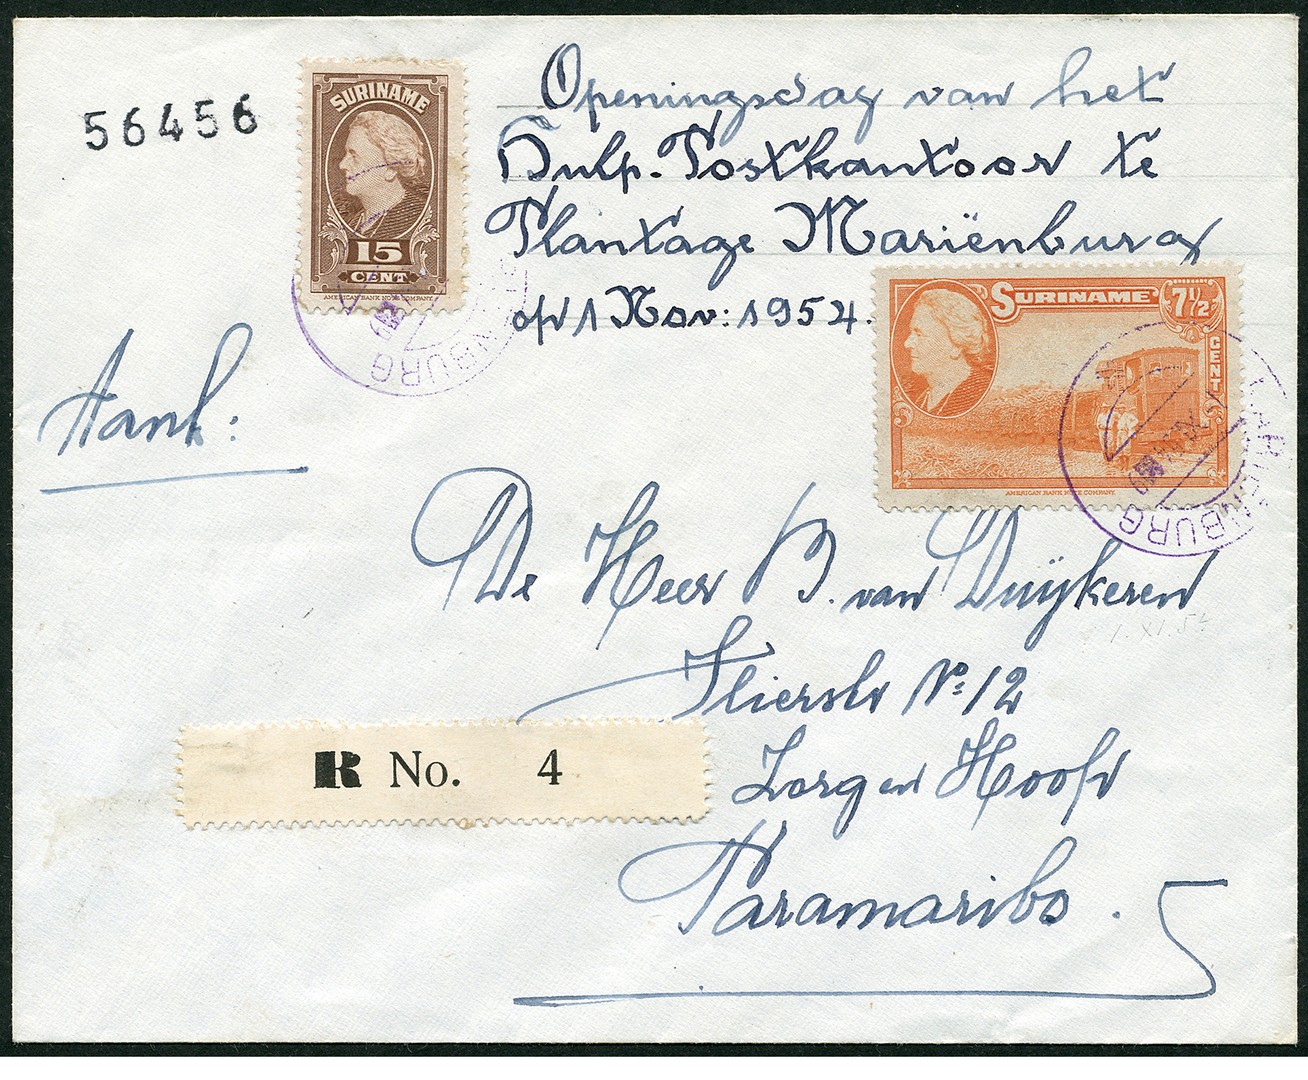 56456
SURINAME
15
CENT
AMERICAN BANK NOTE COMPANY.
Openingsdag van het
Hulp-Postkantoor te
Plantage Mariënburg
op 1 Nov: 1954.
SURINAME
7½
CENT
AMERICAN BANK NOTE COMPANY.
MARIENBURG
Aanh:
De Heer B. van Duÿkeren
Flierstr No: 12
Zorg en Hoop
Paramaribo.
1.XI.54
R No. 4